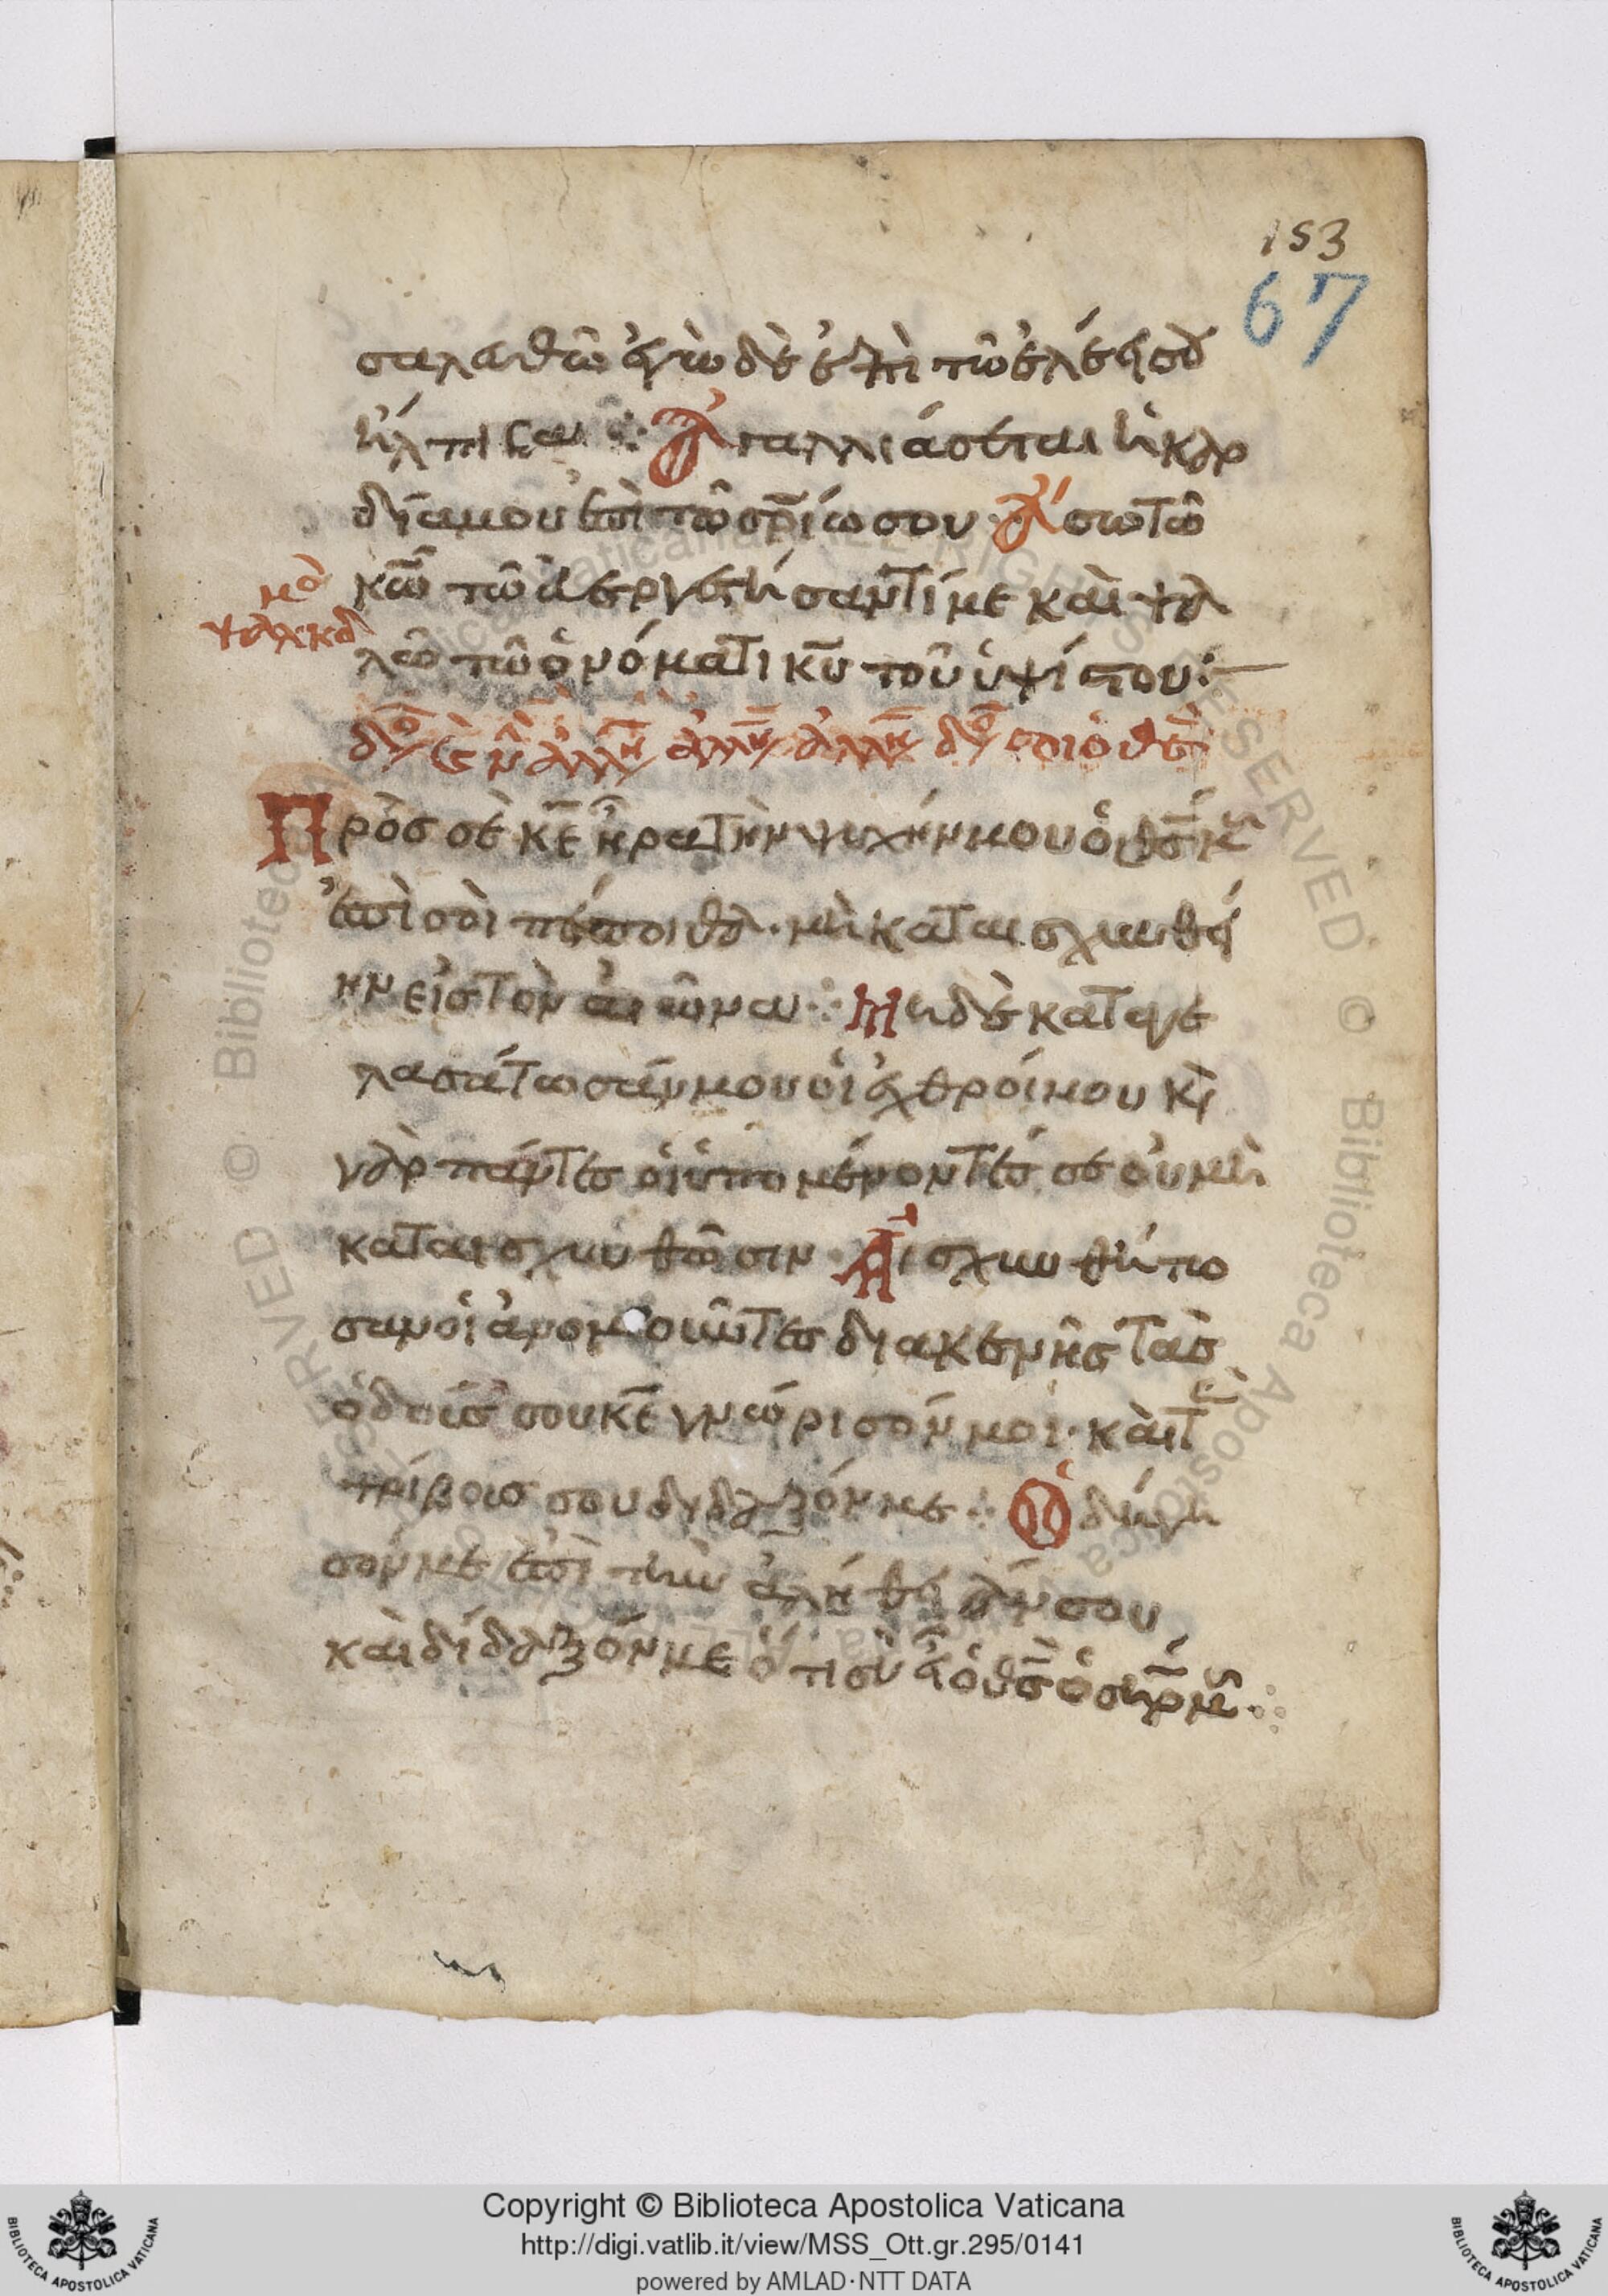 153
67
σαλευθῶ ἐγὼ δὲ ἐπὶ τῷ ἐλέει σου
ἤλπισα· Ἀγαλλιάσεται ἡ καρ
δία μου ἐπὶ τῷ σρίω σου· ᾌσω τῷ
κω τῷ εὐεργετήσαντί με καὶ ψα
λῶ τῷ ὀνόματι κυ τοῦ ὑψίστου:
Πρὸς σὲ κε ἦρα τὴν ψυχήν μου ὁ θς μου
ἐπὶ σοὶ πέποιθα· μὴ καταισχυνθεί
ην εἰς τὸν αἰῶνα: Μηδὲ καταγε
λασάτωσάν μου οἱ ἐχθροί μου κὶ
γὰρ πάντες οἱ ὑπομένοντές σε οὐ μὴ
καταισχυνθῶσιν· Αἰσχυνθήτω
σαν οἱ ἀνομοῦντες διακενῆς Τὰς
ὁδούς σου κε γνώρισόν μοι· καὶ τ
τρίβους σου δίδαξόν με: Ὁδήγη
σόν με ἐπὶ τὴν ἀλήθειάν σου
καὶ δίδαξόν με ὅτι σὺ εἶ ὁ θς ὁ σηρ μου:
Copyright © Biblioteca Apostolica Vaticana
http://digi.vatlib.it/view/MSS_Ott.gr.295/0141
powered by AMLAD·NTT DATA